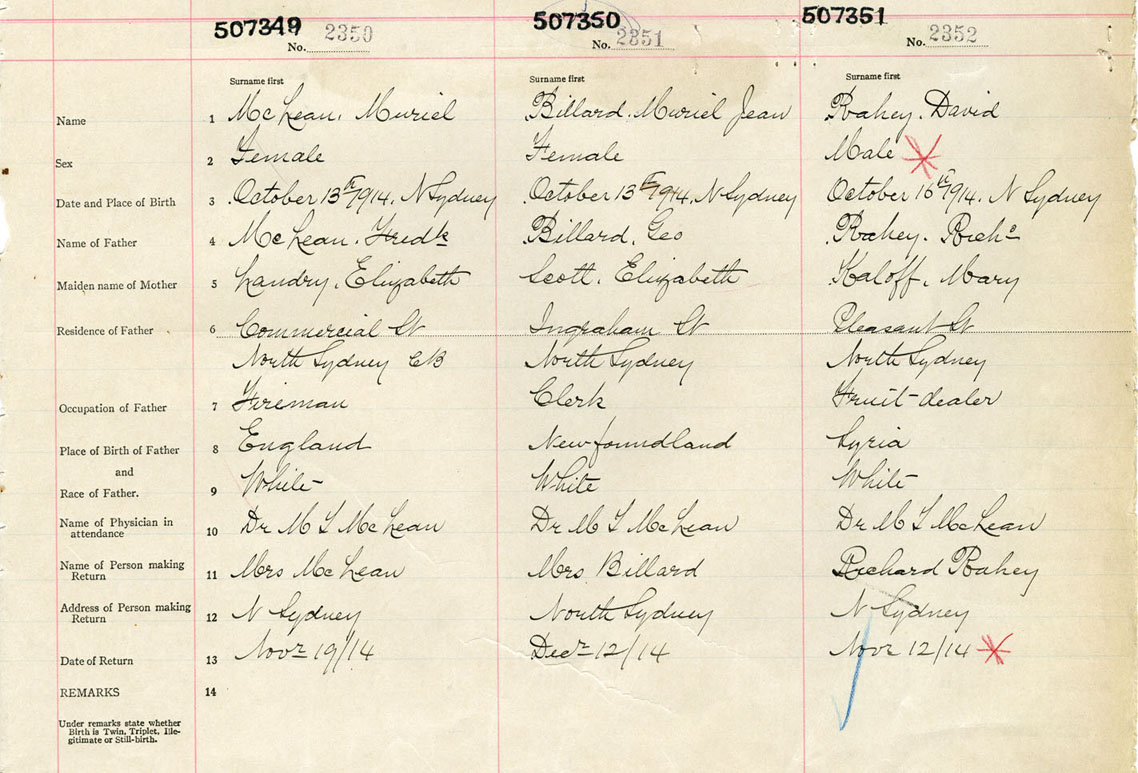 507349 507350 507351
No. 2350 No. 2351 No. 2352
Surname first Surname first Surname first
Name 1 McLean, Muriel Billard, Muriel Jean Rahey, David
Sex 2 Female Female Male
Date and Place of Birth 3 October 13th 1914, N Sydney October 13th 1914, N Sydney October 16th 1914, N Sydney
Name of Father 4 McLean, Fredk Billard, Geo Rahey, Richd
Maiden name of Mother 5 Landry, Elizabeth Scott, Elizabeth Kaloff, Mary
Residence of Father 6 Commercial St Ingraham St Pleasant St
North Sydney CB North Sydney North Sydney
Occupation of Father 7 Fireman Clerk Fruit-dealer
Place of Birth of Father 8 England Newfoundland Syria
and
Race of Father. 9 White White White
Name of Physician in
attendance 10 Dr M T McLean Dr M T McLean Dr M T McLean
Name of Person making
Return 11 Mrs McLean Mrs Billard Richard Rahey
Address of Person making
Return 12 N Sydney North Sydney N Sydney
Date of Return 13 Novr 19/14 Decr 12/14 Novr 12/14
REMARKS 14
Under remarks state whether
Birth is Twin, Triplet, Ille-
gitimate or Still-birth.